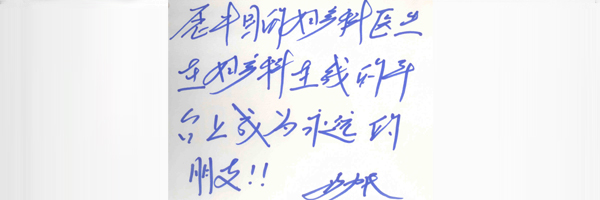 愿中国的妇产科医生
在妇产科在线的平
台上成为永远的
朋友!!